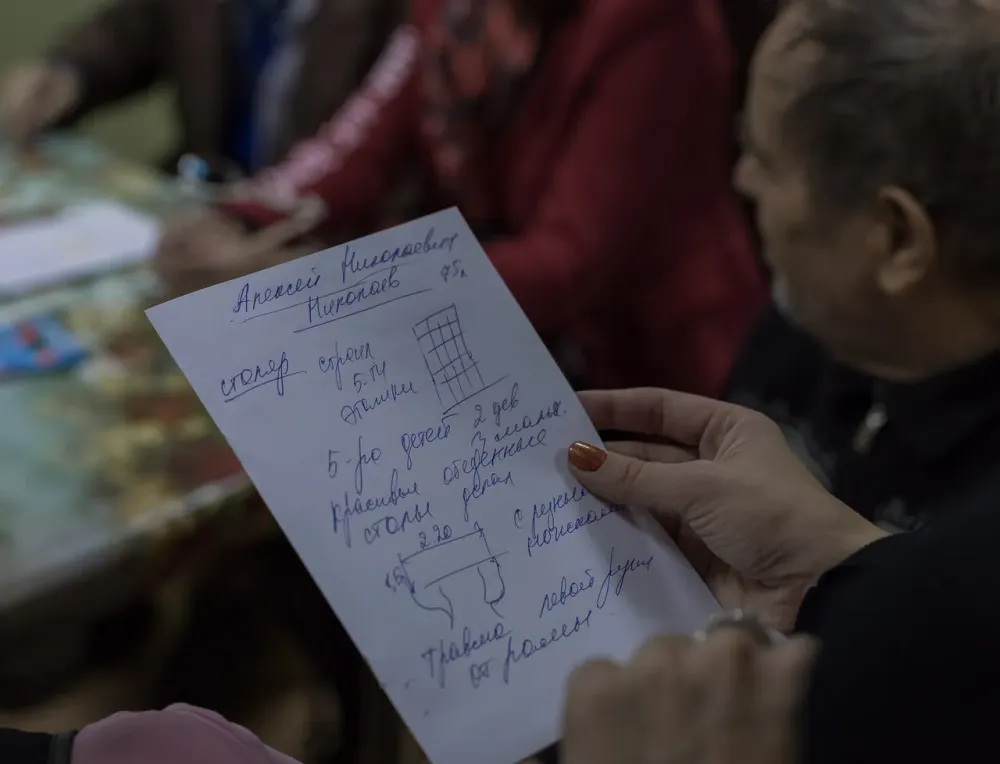 Алексей Николаевич
Николаев 75л
столяр строил
5-ти
этажки
5-ро детей 2 дев
3 мальч.
красивые обеденные
столы делал
2.20
с резными
ножками
травма левой руки
от рамы